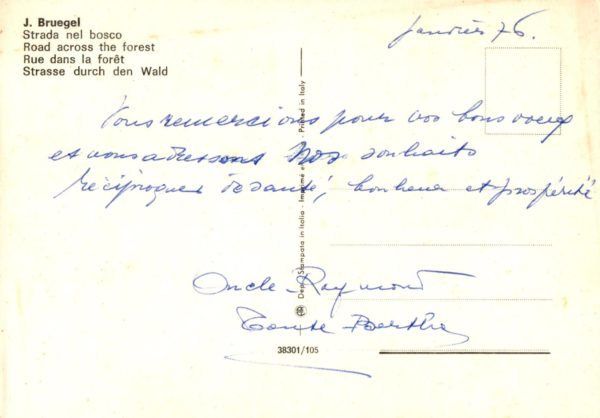 J. Bruegel
Strada nel bosco
Road across the forest
Rue dans la forêt
Strasse durch den Wald
Janvier 76.
Vous remercions pour vos bons voeux
et vous adressons Nos souhaits
réciproques de santé, bonheur et prospérité
Oncle Raymond
Tante Berthe
Dep. Stampata in Italia - Imprimé en - Printed in Italy
38301/105